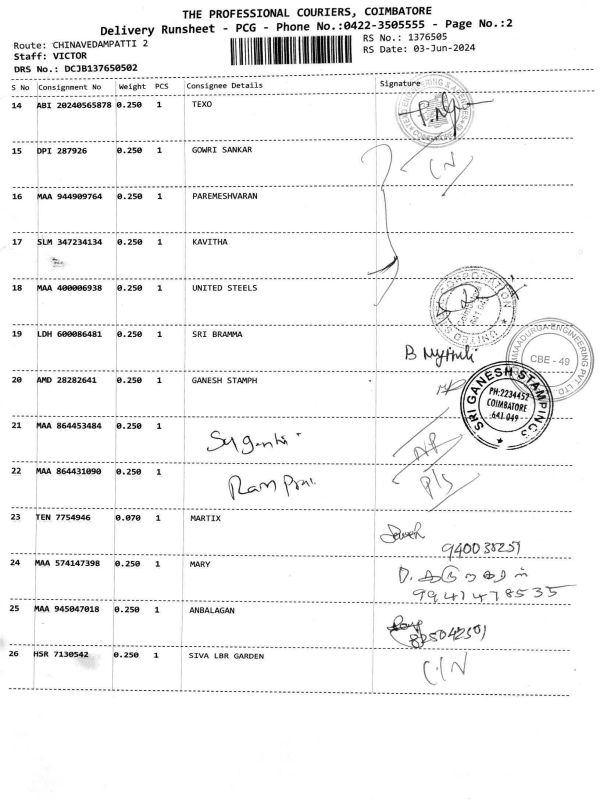 THE PROFESSIONAL COURIERS, COIMBATORE
Delivery Runsheet - PCG - Phone No.:0422-3505555 - Page No.:2
Route: CHINAVEDAMPATTI 2
RS No.: 1376505
Staff: VICTOR
RS Date: 03-Jun-2024
DRS No.: DCJB137650502
S No Consignment No Weight PCS Consignee Details Signature
14 ABI 20240565878 0.250 1 TEXO
15 DPI 287926 0.250 1 GOWRI SANKAR
C/N
16 MAA 944909764 0.250 1 PAREMESHVARAN
17 SLM 347234134 0.250 1 KAVITHA
18 MAA 400006938 0.250 1 UNITED STEELS
19 LDH 600086481 0.250 1 SRI BRAMMA
CBE - 49
20 AMD 28282641 0.250 1 GANESH STAMPH
SRI GANESH STAMPINGS
PH:2234452
COIMBATORE
641 049
21 MAA 864453484 0.250 1
22 MAA 864431090 0.250 1
23 TEN 7754946 0.070 1 MARTIX
24 MAA 574147398 0.250 1 MARY
25 MAA 945047018 0.250 1 ANBALAGAN
26 HSR 7130542 0.250 1 SIVA LBR GARDEN
C/N